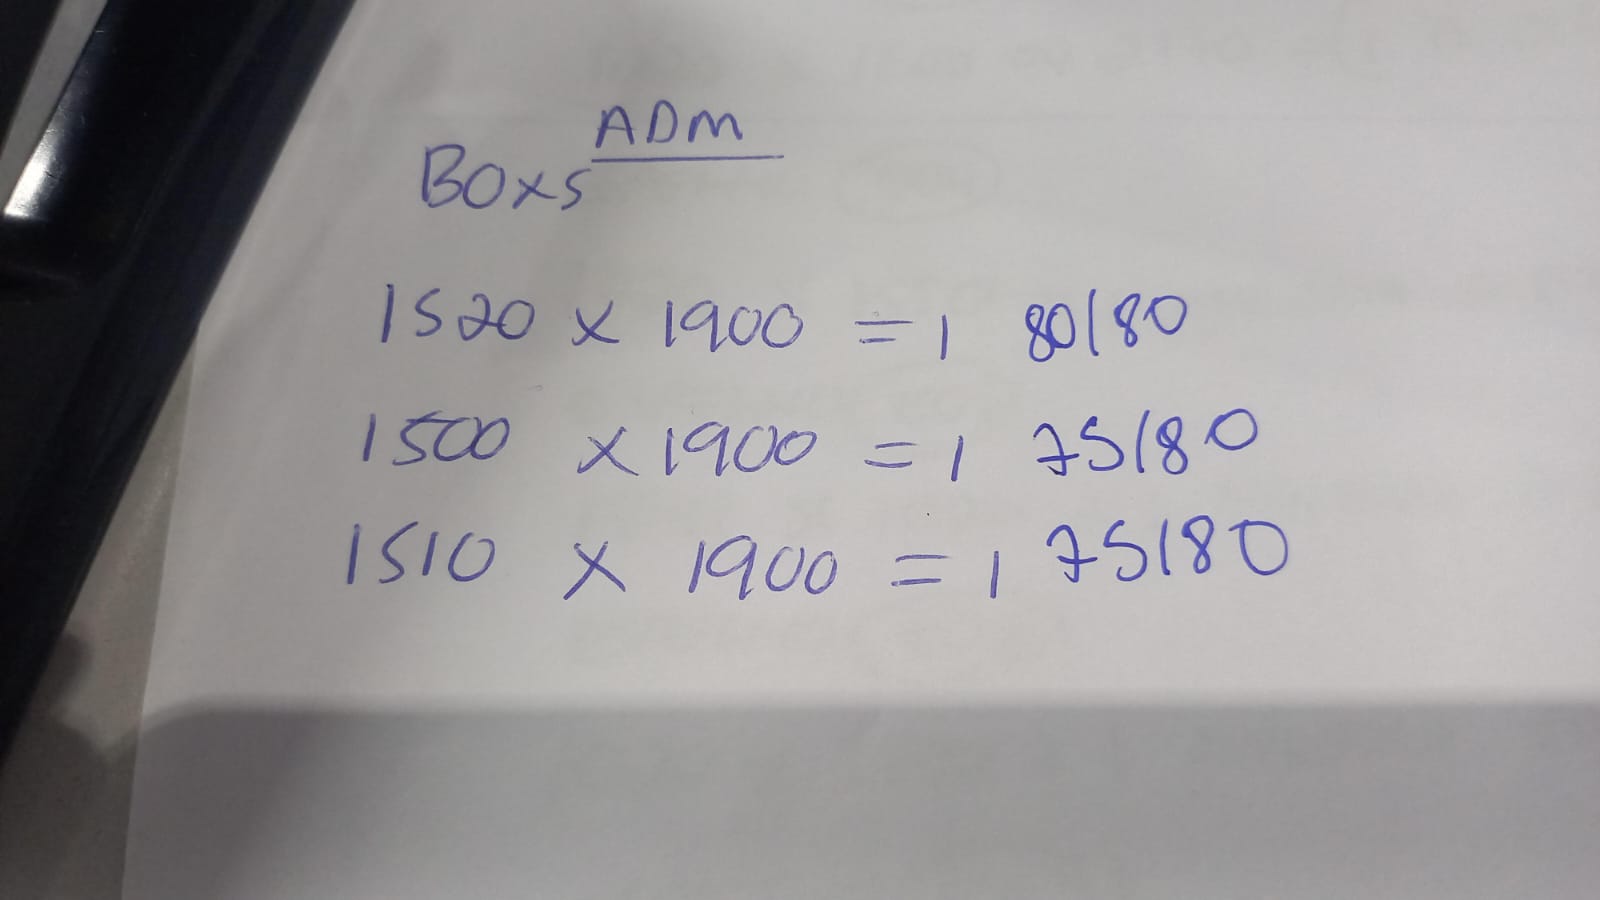 ADM
BOxs
1520 x 1900 = 1 80/80
1500 x 1900 = 1 75/80
1510 x 1900 = 1 75/80